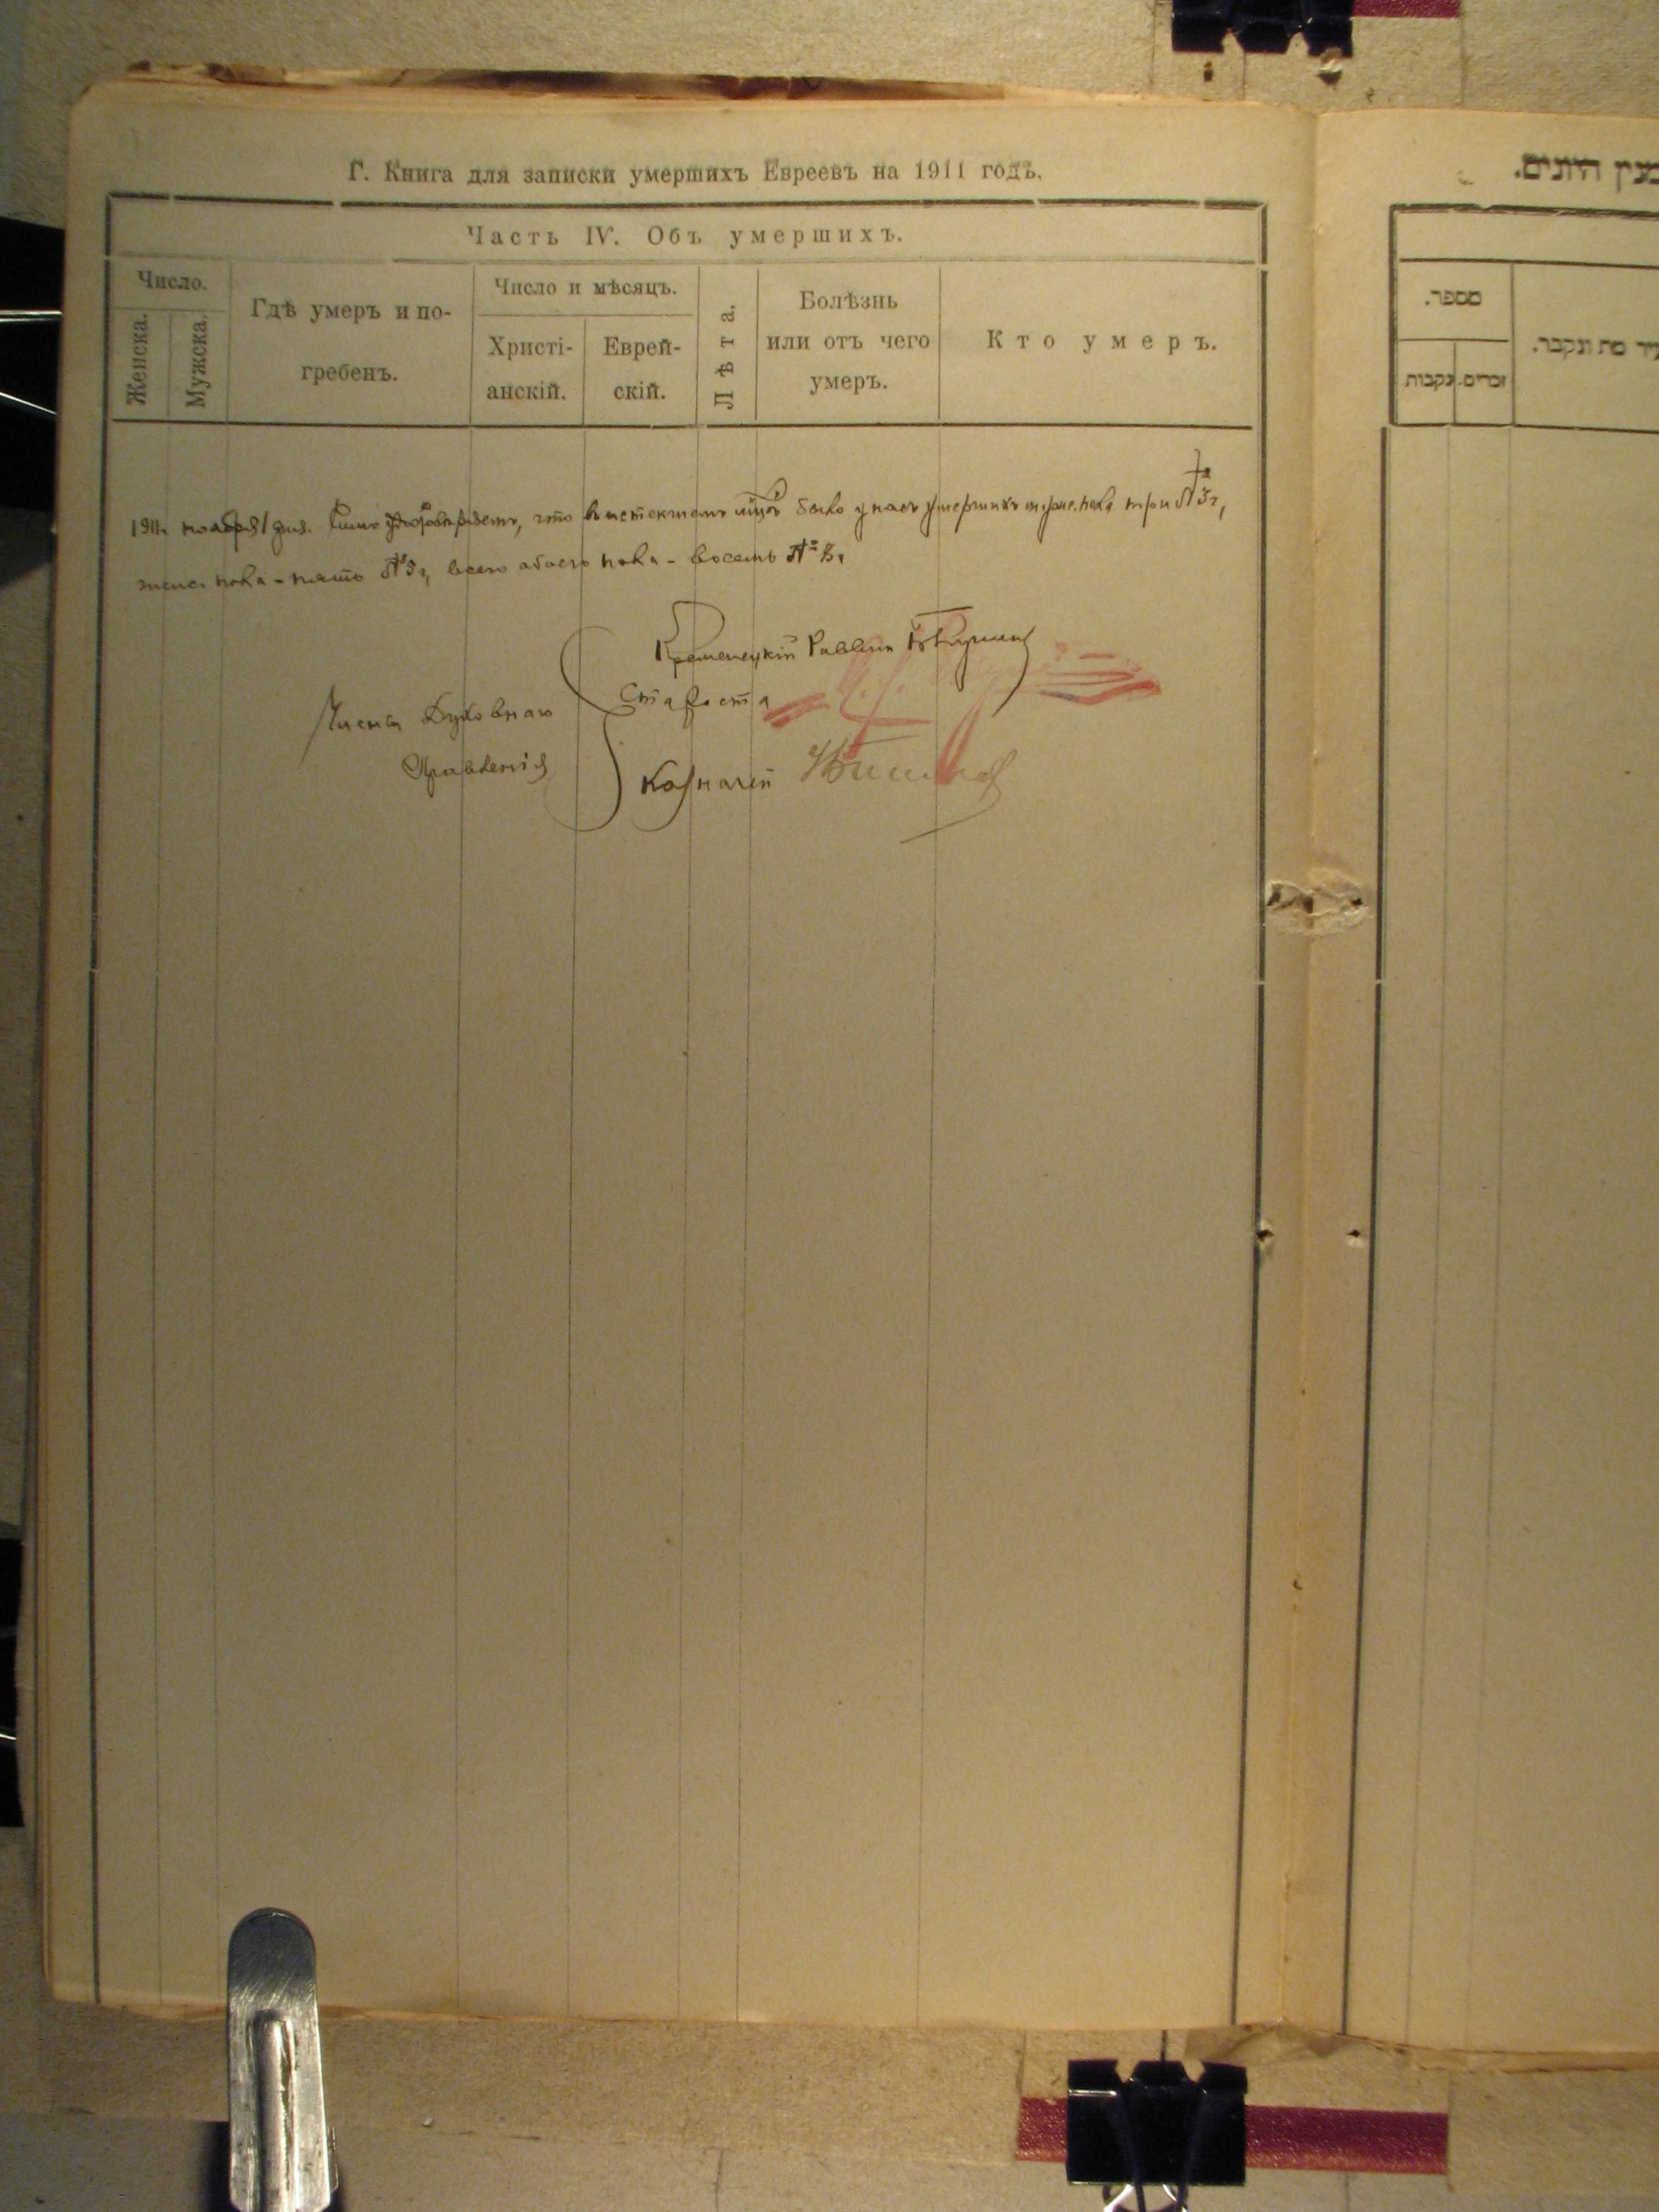 Г. Книга для записки умершихъ Евреевъ на 1911 годъ.
Часть IV. Объ умершихъ.
Число.
Женска.
Мужска.
Гдѣ умеръ и по-
гребенъ.
Число и мѣсяцъ.
Христі-
анскій.
Еврей-
скій.
Лѣта.
Болѣзнь
или отъ чего
умеръ.
Кто умеръ.
1911 г. ноября 1 дня. Симъ удостовѣряемъ, что въ истекшемъ м-цѣ было у насъ умершихъ муж. пола три № 3,
женс. пола - пять № 5, всего обоего пола - восемь № 8,
Кременецкій Раввин
Члены Духовнаго
Староста
Правленія
Казначей
מספר.
זכרים.
נקבות